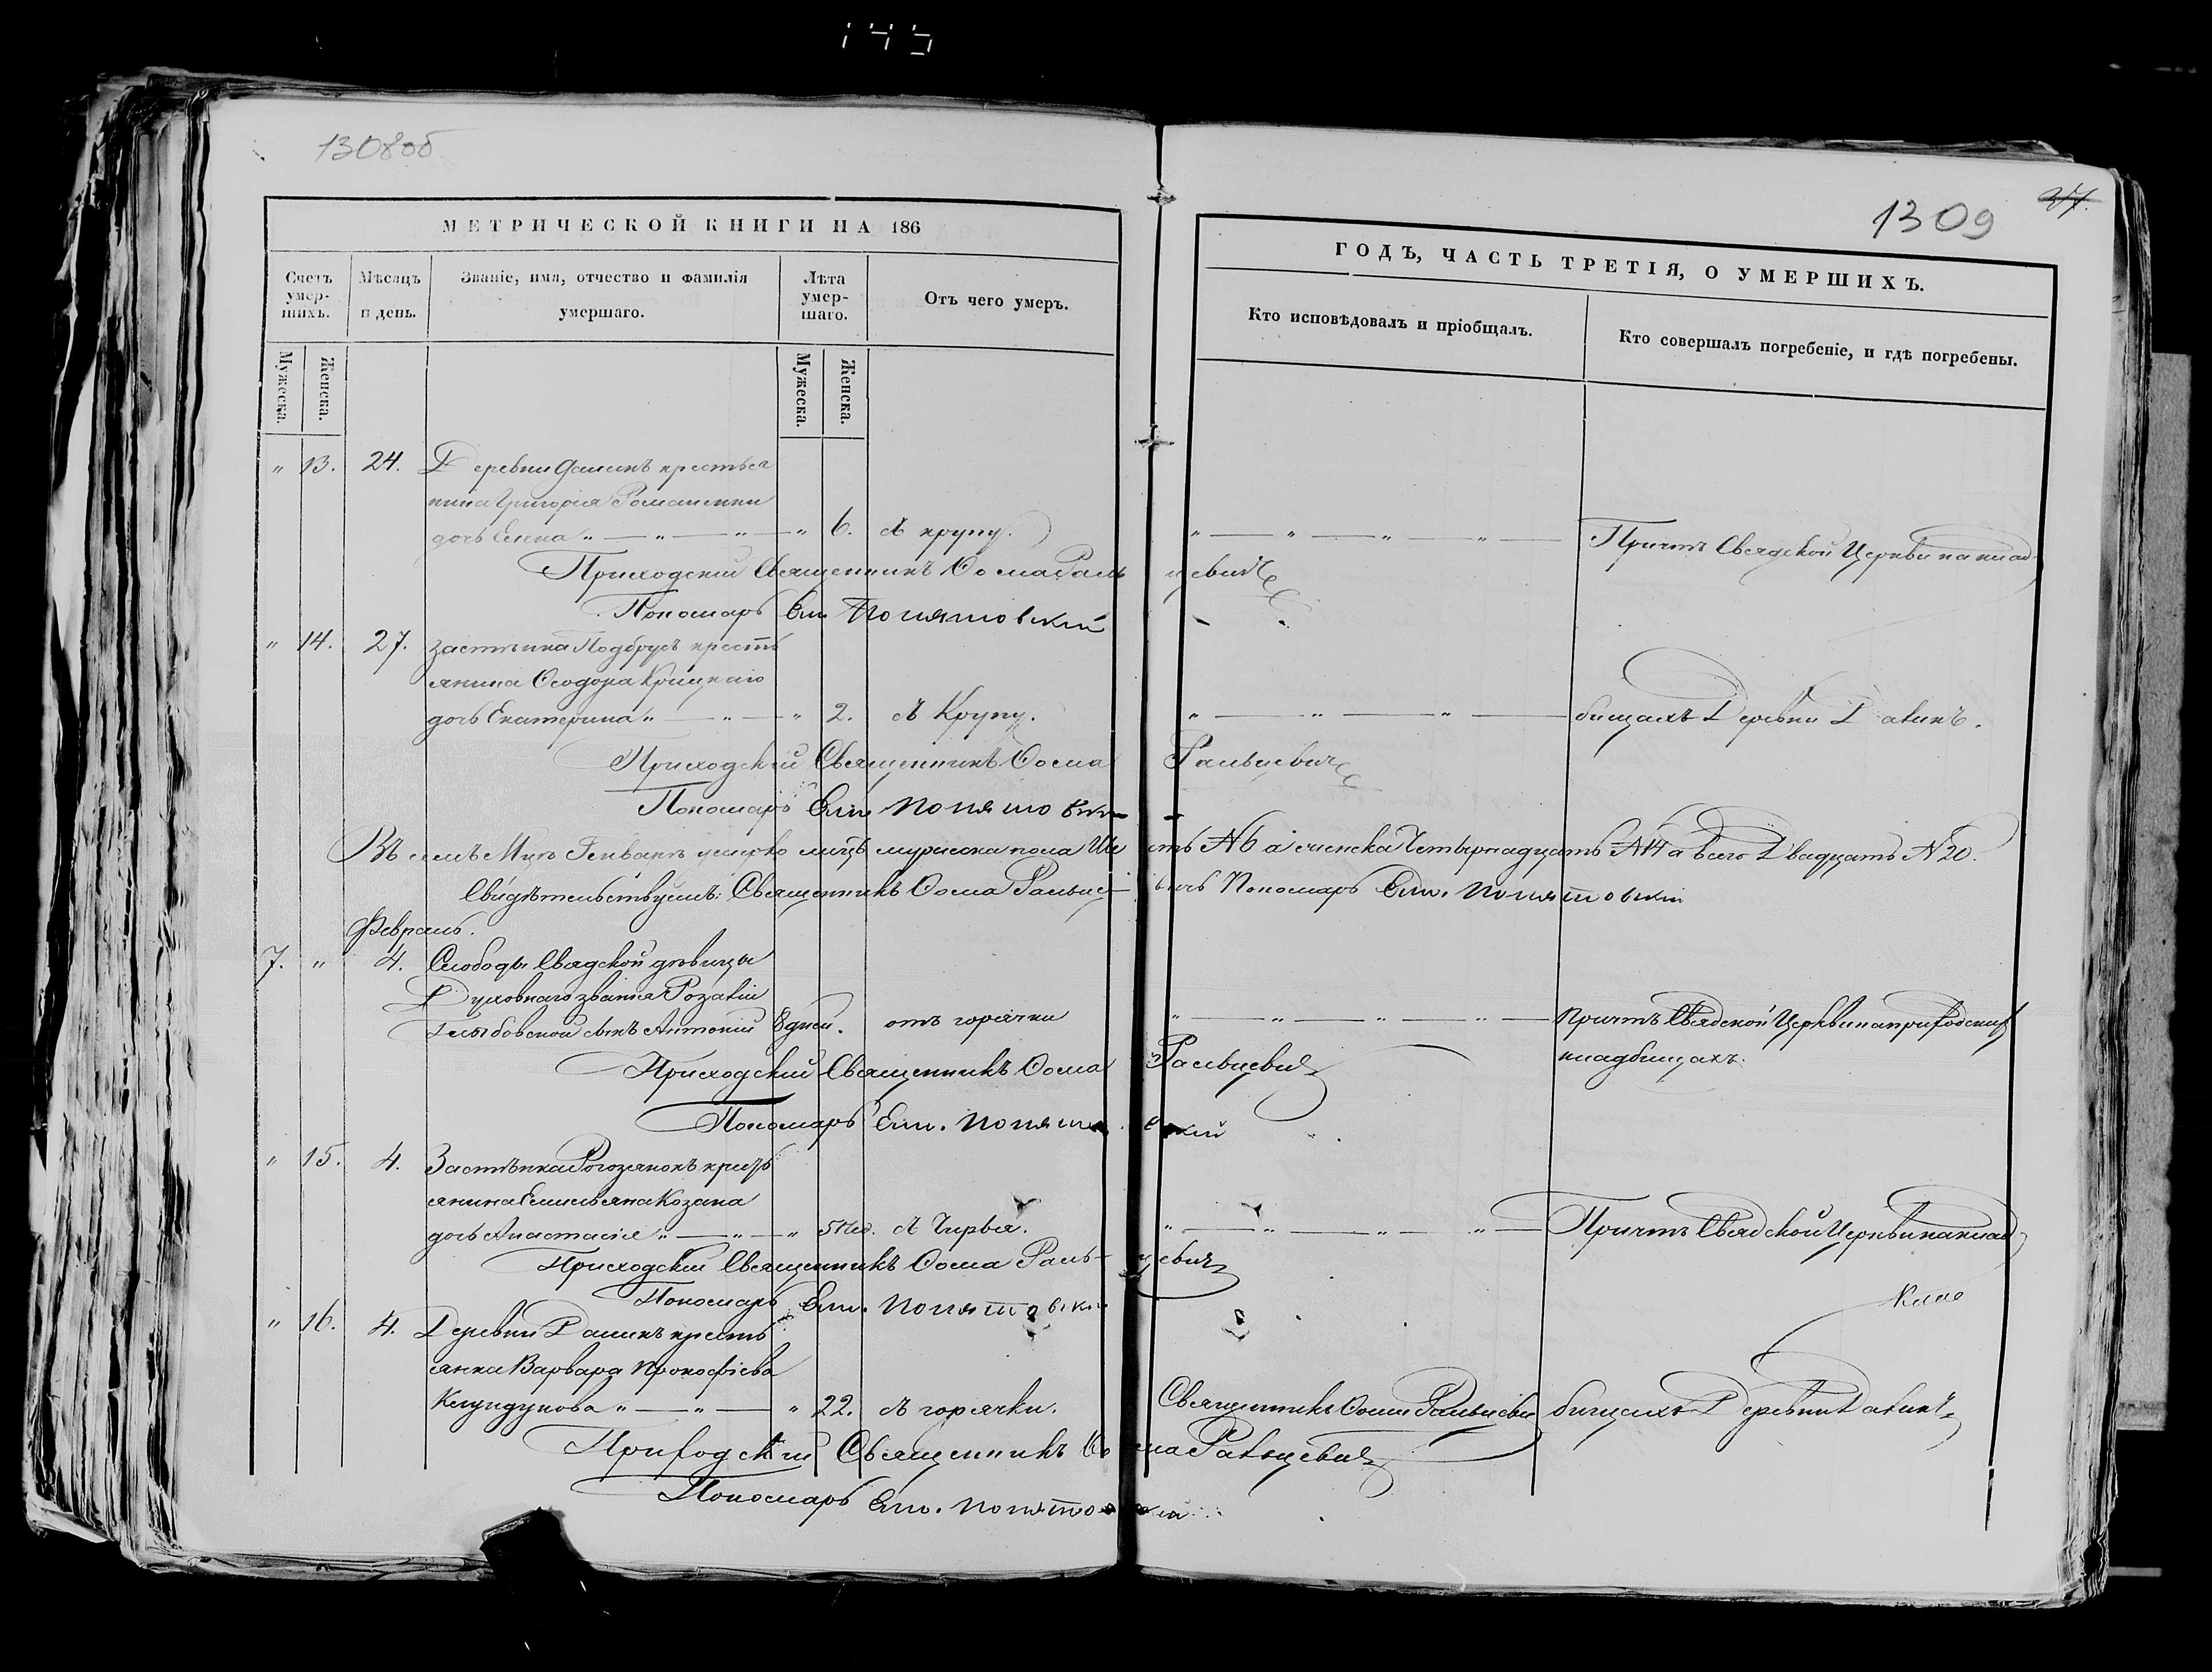 145
1308об
1309
27.
МЕТРИЧЕСКОЙ КНИГИ НА 186
ГОДЪ, ЧАСТЬ ТРЕТІЯ, О УМЕРШИХЪ.
Счетъ умер-шихъ.
Мѣсяцъ и день.
Званіе, имя, отчество и фамилія умершаго.
Лѣта умер-шаго.
Отъ чего умеръ.
Кто исповѣдовалъ и пріобщалъ.
Кто совершалъ погребеніе, и гдѣ погребены.
Мужеска.
Женска.
Мужеска.
Женска.
" 13. 24. Деревни крестья
нина Григорія Романенки
дочь Елена " — " — " — " 6. Съ крупу. " — " — " — " — Причтъ Свядской Церкви на клад
Приходскій Священникъ Ѳома Ральцевичъ
Пономарь Ем. Понятовскій
" 14. 27. застѣнка Подбрусъ кресть
янина Ѳеодора Крицкаго
дочь Екатерина " — " — " 2. Съ Крупу. " — " — " — бищахъ Деревни
Приходскій Священникъ Ѳома Ральцевичъ
Пономарь Ем. Понятовскій
Въ семъ Мцѣ Генварѣ умерло лицъ мужеска пола Шесть №6 а женска Четырнадцать №14 а всего Двадцать №20.
Свидѣтельствуемъ: Священникъ Ѳома Ральцевичъ Пономарь Ем. Понятовскій
Февраль.
7. " 4. Слободы Свядской дѣвицы
Духовнаго званія Розаліи
сынъ Антоній 8 дней. отъ горячки " — " — " — " — Причтъ Свядской Церкви на приходскихъ
кладбищахъ.
Приходскій Священникъ Ѳома Ральцевичъ
Пономарь Ем. Понятовскій
" 15. 4. Застѣнка крест
янина Емельяна Козана
дочь Анастасія " — " — " 5 Нед. Съ Чирвя. " — " — " — " — Причтъ Свядской Церкви на клад
Приходскій Священникъ Ѳома Ральцевичъ
Пономарь Ем. Понятовскій
" 16. 4. Деревни кресть
янка Варвара Прокофіева
" — " — " 22. Съ горячки. Священникъ Ѳома Ральцевичъ бищахъ Деревни
Приходскій Священникъ Ѳома Ральцевичъ
Пономарь Ем. Понятовскій